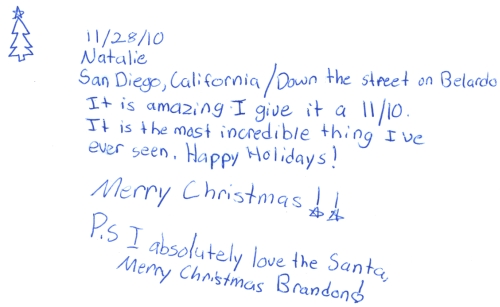 11/28/10
Natalie
San Diego, California/Down the street on Belardo
It is amazing I give it a 11/10.
It is the most incredible thing I've
ever seen. Happy Holidays!
Merry Christmas!!
P.S I absolutely love the Santa,
Merry Christmas Brandon!